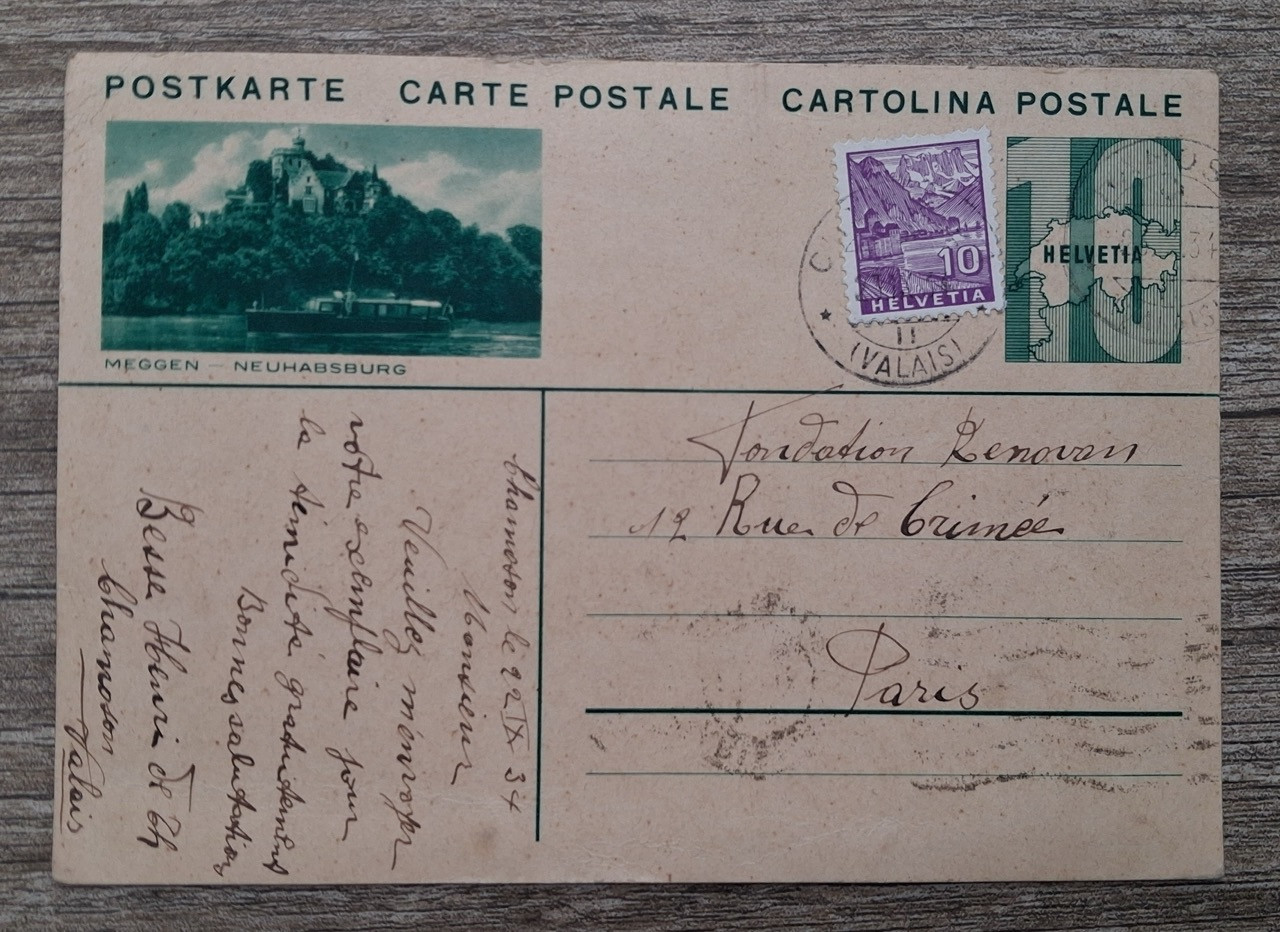 POSTKARTE CARTE POSTALE CARTOLINA POSTALE
MEGGEN — NEUHABSBURG
10
HELVETIA
10
HELVETIA
11
(VALAIS)
Fondation Renovan
12 Rue de Crimée
Paris
Chamoson le 22 IX 34
Monsieur
Veuillez m'envoyer
votre exemplaire pour
la timidité gratuitement
Bonnes salutation
Besse Henri de Ch
Chamoson
Valais